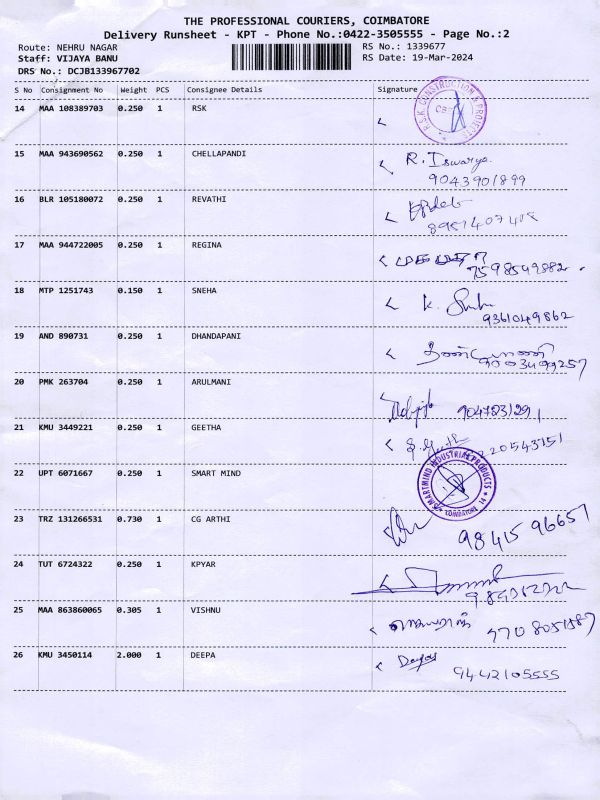 THE PROFESSIONAL COURIERS, COIMBATORE
Delivery Runsheet - KPT - Phone No.:0422-3505555 - Page No.:2
Route: NEHRU NAGAR RS No.: 1339677
Staff: VIJAYA BANU RS Date: 19-Mar-2024
DRS No.: DCJB133967702
S No Consignment No Weight PCS Consignee Details Signature
14 MAA 108389703 0.250 1 RSK
R.S.K CONSTRUCTION & PROJECTS
15 MAA 943690562 0.250 1 CHELLAPANDI R. Iswarya
9043901899
16 BLR 105180072 0.250 1 REVATHI
17 MAA 944722005 0.250 1 REGINA
7598549882
18 MTP 1251743 0.150 1 SNEHA K.
9361049862
19 AND 890731 0.250 1 DHANDAPANI
9003499257
20 PMK 263704 0.250 1 ARULMANI
9047831291
21 KMU 3449221 0.250 1 GEETHA
22 UPT 6071667 0.250 1 SMART MIND
SMARTMIND INDUSTRIAL PRODUCTS COIMBATORE
23 TRZ 131266531 0.730 1 CG ARTHI 98415 96657
24 TUT 6724322 0.250 1 KPYAR
25 MAA 863860065 0.305 1 VISHNU
26 KMU 3450114 2.000 1 DEEPA
9442105555